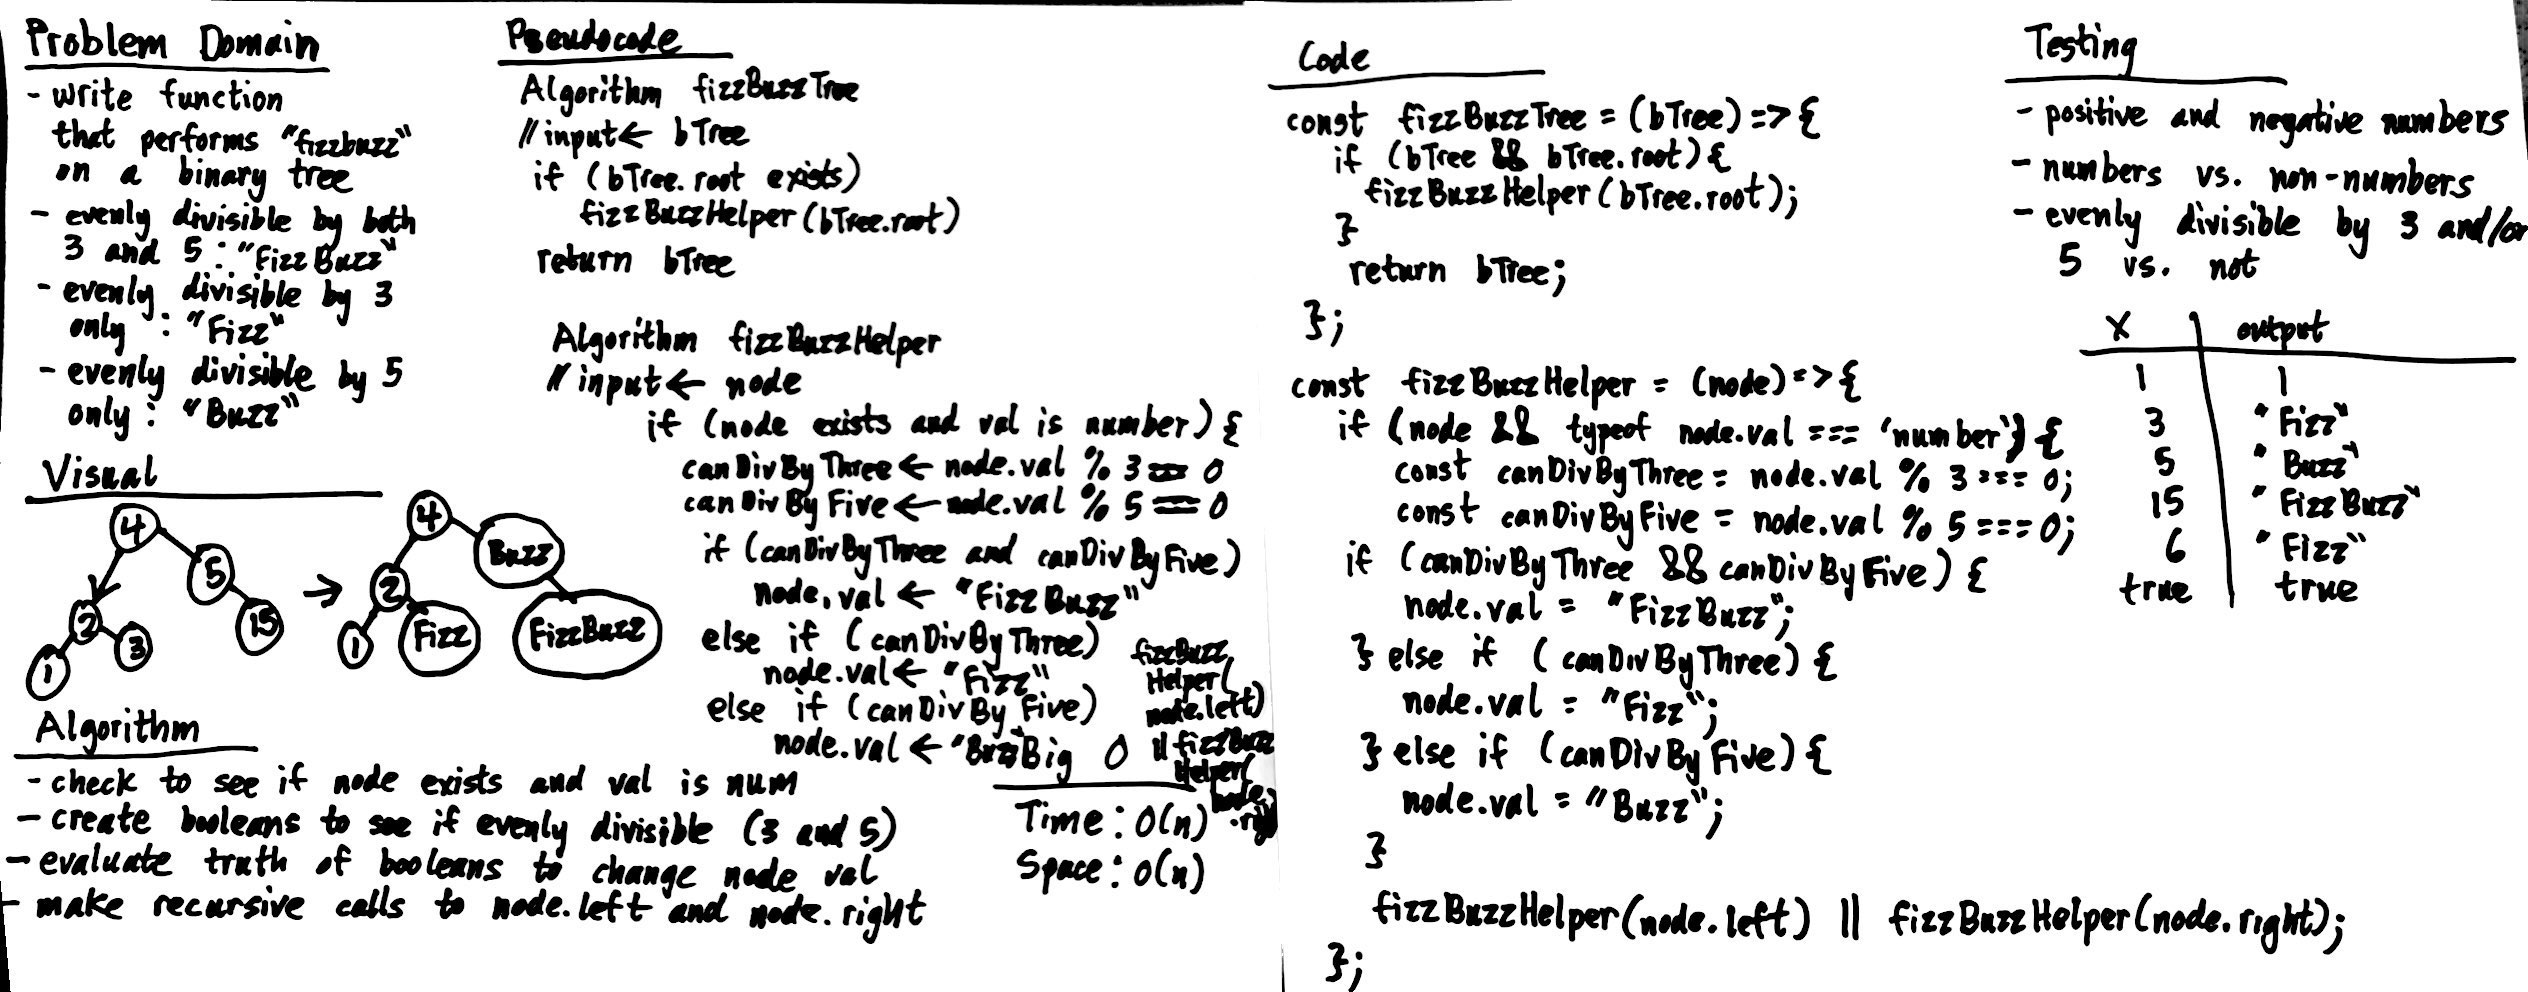 Problem Domain
- write function
that performs "fizzbuzz"
on a binary tree
- evenly divisible by both
3 and 5 : "FizzBuzz"
- evenly divisible by 3
only : "Fizz"
- evenly divisible by 5
only : "Buzz"
Visual
4
5
2
15
1
3
→
4
Buzz
2
1
Fizz
FizzBuzz
Algorithm
- check to see if node exists and val is num
- create booleans to see if evenly divisible (3 and 5)
- evaluate truth of booleans to change node val
- make recursive calls to node.left and node.right
Pseudocode
Algorithm fizzBuzzTree
// input ← bTree
if (bTree.root exists)
fizzBuzzHelper (bTree.root)
return bTree
Algorithm fizzBuzzHelper
// input ← node
if (node exists and val is number) {
canDivByThree ← node.val % 3 == 0
canDivByFive ← node.val % 5 == 0
if (canDivByThree and canDivByFive)
node.val ← "FizzBuzz"
else if (canDivByThree)
node.val ← "Fizz"
else if (canDivByFive)
node.val ← "Buzz"
fizzBuzz
Helper(
node.left)
|| fizzBuzz
Helper(
node
.right
Big O
Time : O(n)
Space : O(n)
Code
const fizzBuzzTree = (bTree) => {
if (bTree && bTree.root) {
fizzBuzzHelper (bTree.root);
}
return bTree;
};
const fizzBuzzHelper = (node) => {
if (node && typeof node.val === 'number') {
const canDivByThree = node.val % 3 === 0;
const canDivByFive = node.val % 5 === 0;
if (canDivByThree && canDivByFive) {
node.val = "FizzBuzz";
} else if (canDivByThree) {
node.val = "Fizz";
} else if (canDivByFive) {
node.val = "Buzz";
}
fizzBuzzHelper (node.left) || fizzBuzzHelper (node.right);
};
Testing
- positive and negative numbers
- numbers vs. non-numbers
- evenly divisible by 3 and/or
5 vs. not
X output
1 1
3 "Fizz"
5 "Buzz"
15 "FizzBuzz"
6 "Fizz"
true true